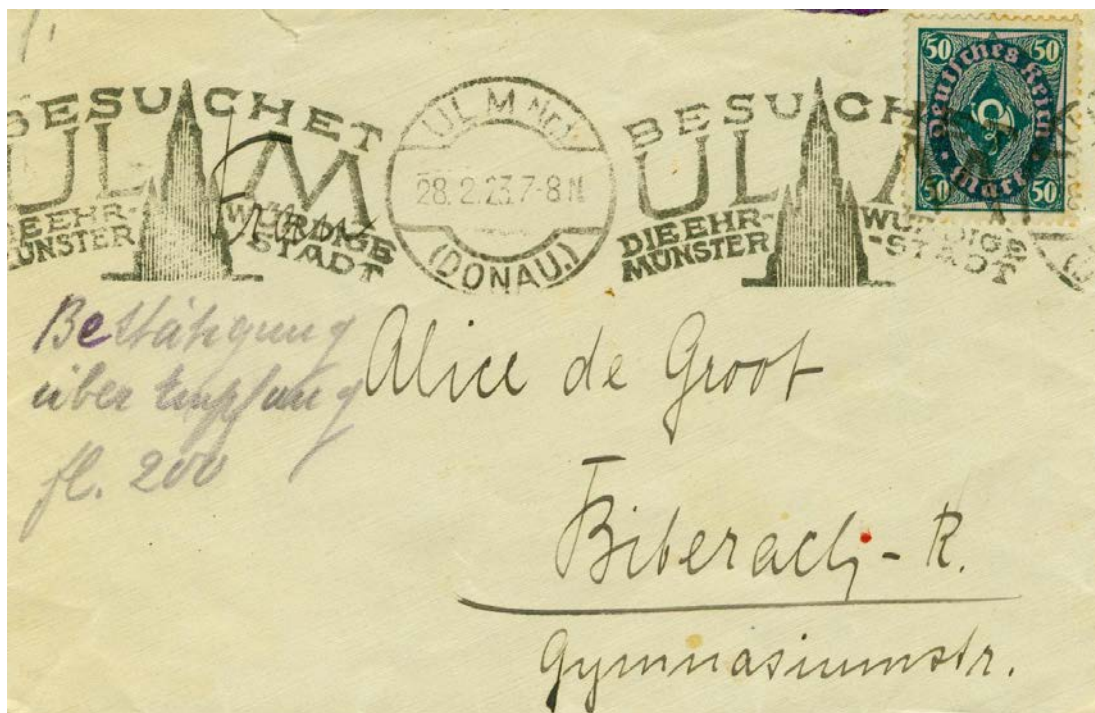 BESUCHET
ULM
DIE EHR-
WÜRDIGE
MÜNSTER
-STADT
ULM Nr.1
28.2.23.7-8 N
(DONAU.)
BESUCH
ULM
DIE EHR-
WÜRDIGE
MÜNSTER
-STADT
50 50
Deutsches Reich
Mark
50 50
Bestätigung
über Empfang
fl. 200
Alice de Groot
Biberach - R.
Gymnasiumstr.